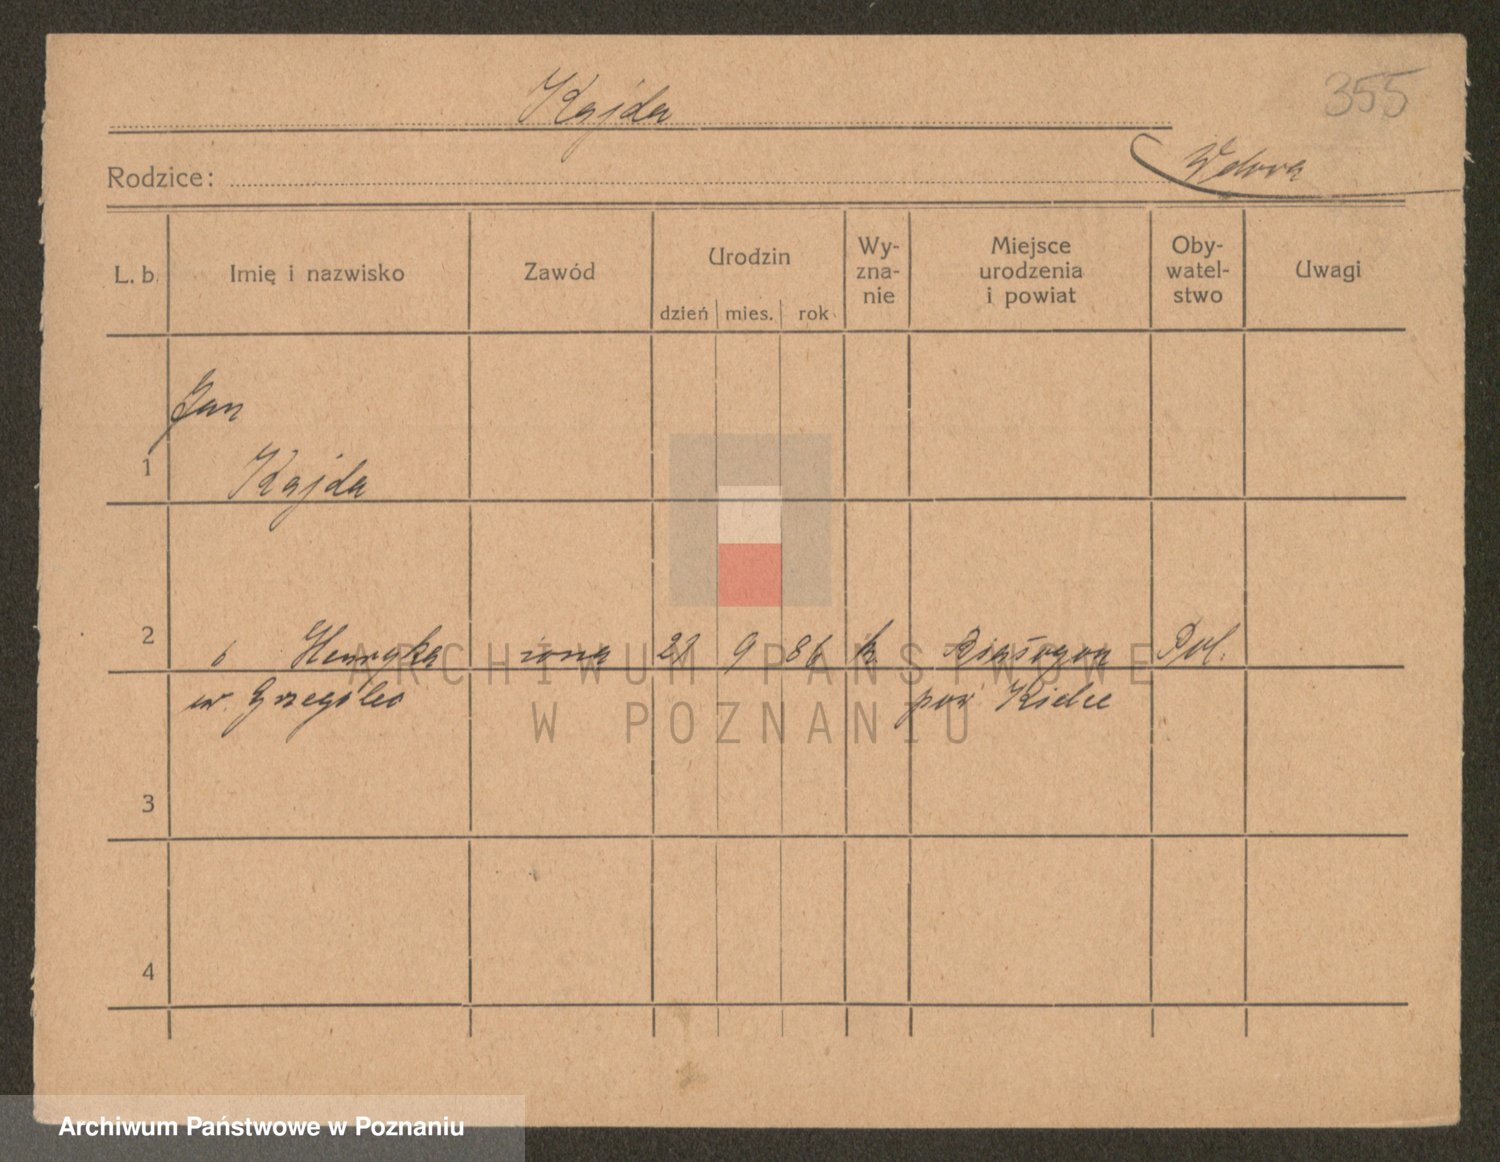 355
Kajda
Wdowa
Rodzice:
L. b. Imię i nazwisko Zawód Urodzin dzień mies. rok Wy-zna-nie Miejsce urodzenia i powiat Oby-watel-stwo Uwagi
Jan
1 Kajda
2 Henryka żona 9 86 k Białogon Pol.
Grzegolec pow Kielce
3
4
ARCHIWUM PAŃSTWOWE
W POZNANIU
Archiwum Państwowe w Poznaniu